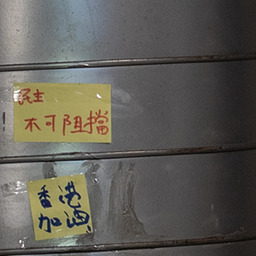 民主
不可阻擋
香港
加油